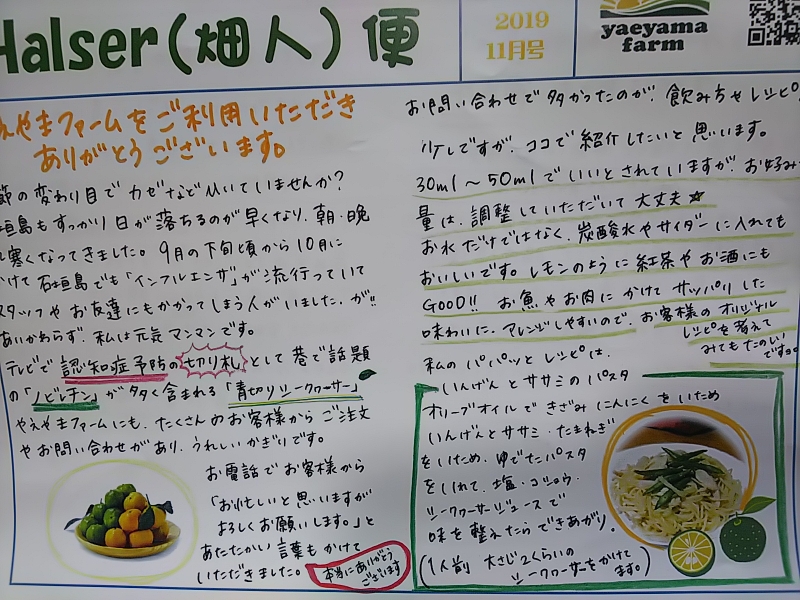 Halser(畑人)便
2019
11月号
yaeyama
farm
えやまファームをご利用いただき
ありがとうございます。
節の変わり目でカゼなどひいていませんか?
垣島もすっかり日が落ちるのが早くなり、朝・晩
寒くなってきました。9月の下旬頃から10月に
けて石垣島でも「インフルエンザ」が流行っていて
スタッフやお友達にもかかってしまう人がいました、が!!
あいかわらず、私は元気マンマンです。
テレビで認知症予防の切り札として巷で話題
の「ノビレチン」が多く含まれる「青切りシークヮーサー」
やえやまファームにも、たくさんのお客様からご注文
やお問い合わせがあり、うれしいかぎりです。
お電話でお客様から
「お忙しいと思いますが
よろしくお願いします。」と
あたたかい言葉もかけて
いただきました。
本当にありがとう
ございます
お問い合わせで多かったのが、飲み方やレシピ。
リケレですが、ココで紹介したいと思います。
30ml〜50mlでいいとされていますが、お好み
量は、調整していただいて大丈夫☆
お水だけではなく、炭酸水やサイダーに入れても
おいしいです。レモンのように紅茶やお酒にも
GOOD!! お魚やお肉にかけてサッパリした
味わいに。アレンジしやすいので、お客様のオリジナル
レシピを考えて
みてもたのしい
ですね
私のパパッとレシピは、
いんげんとササミのパスタ
オリーブオイルできざみにんにくをいため
いんげんとササミ・たまねぎ
をいため、ゆでたパスタ
をいれて、塩・コショウ・
シークヮーサージュースで
味を整えたらできあがり。
(1人前 大さじ2くらいの
シークヮーサーをかけて
ます。)